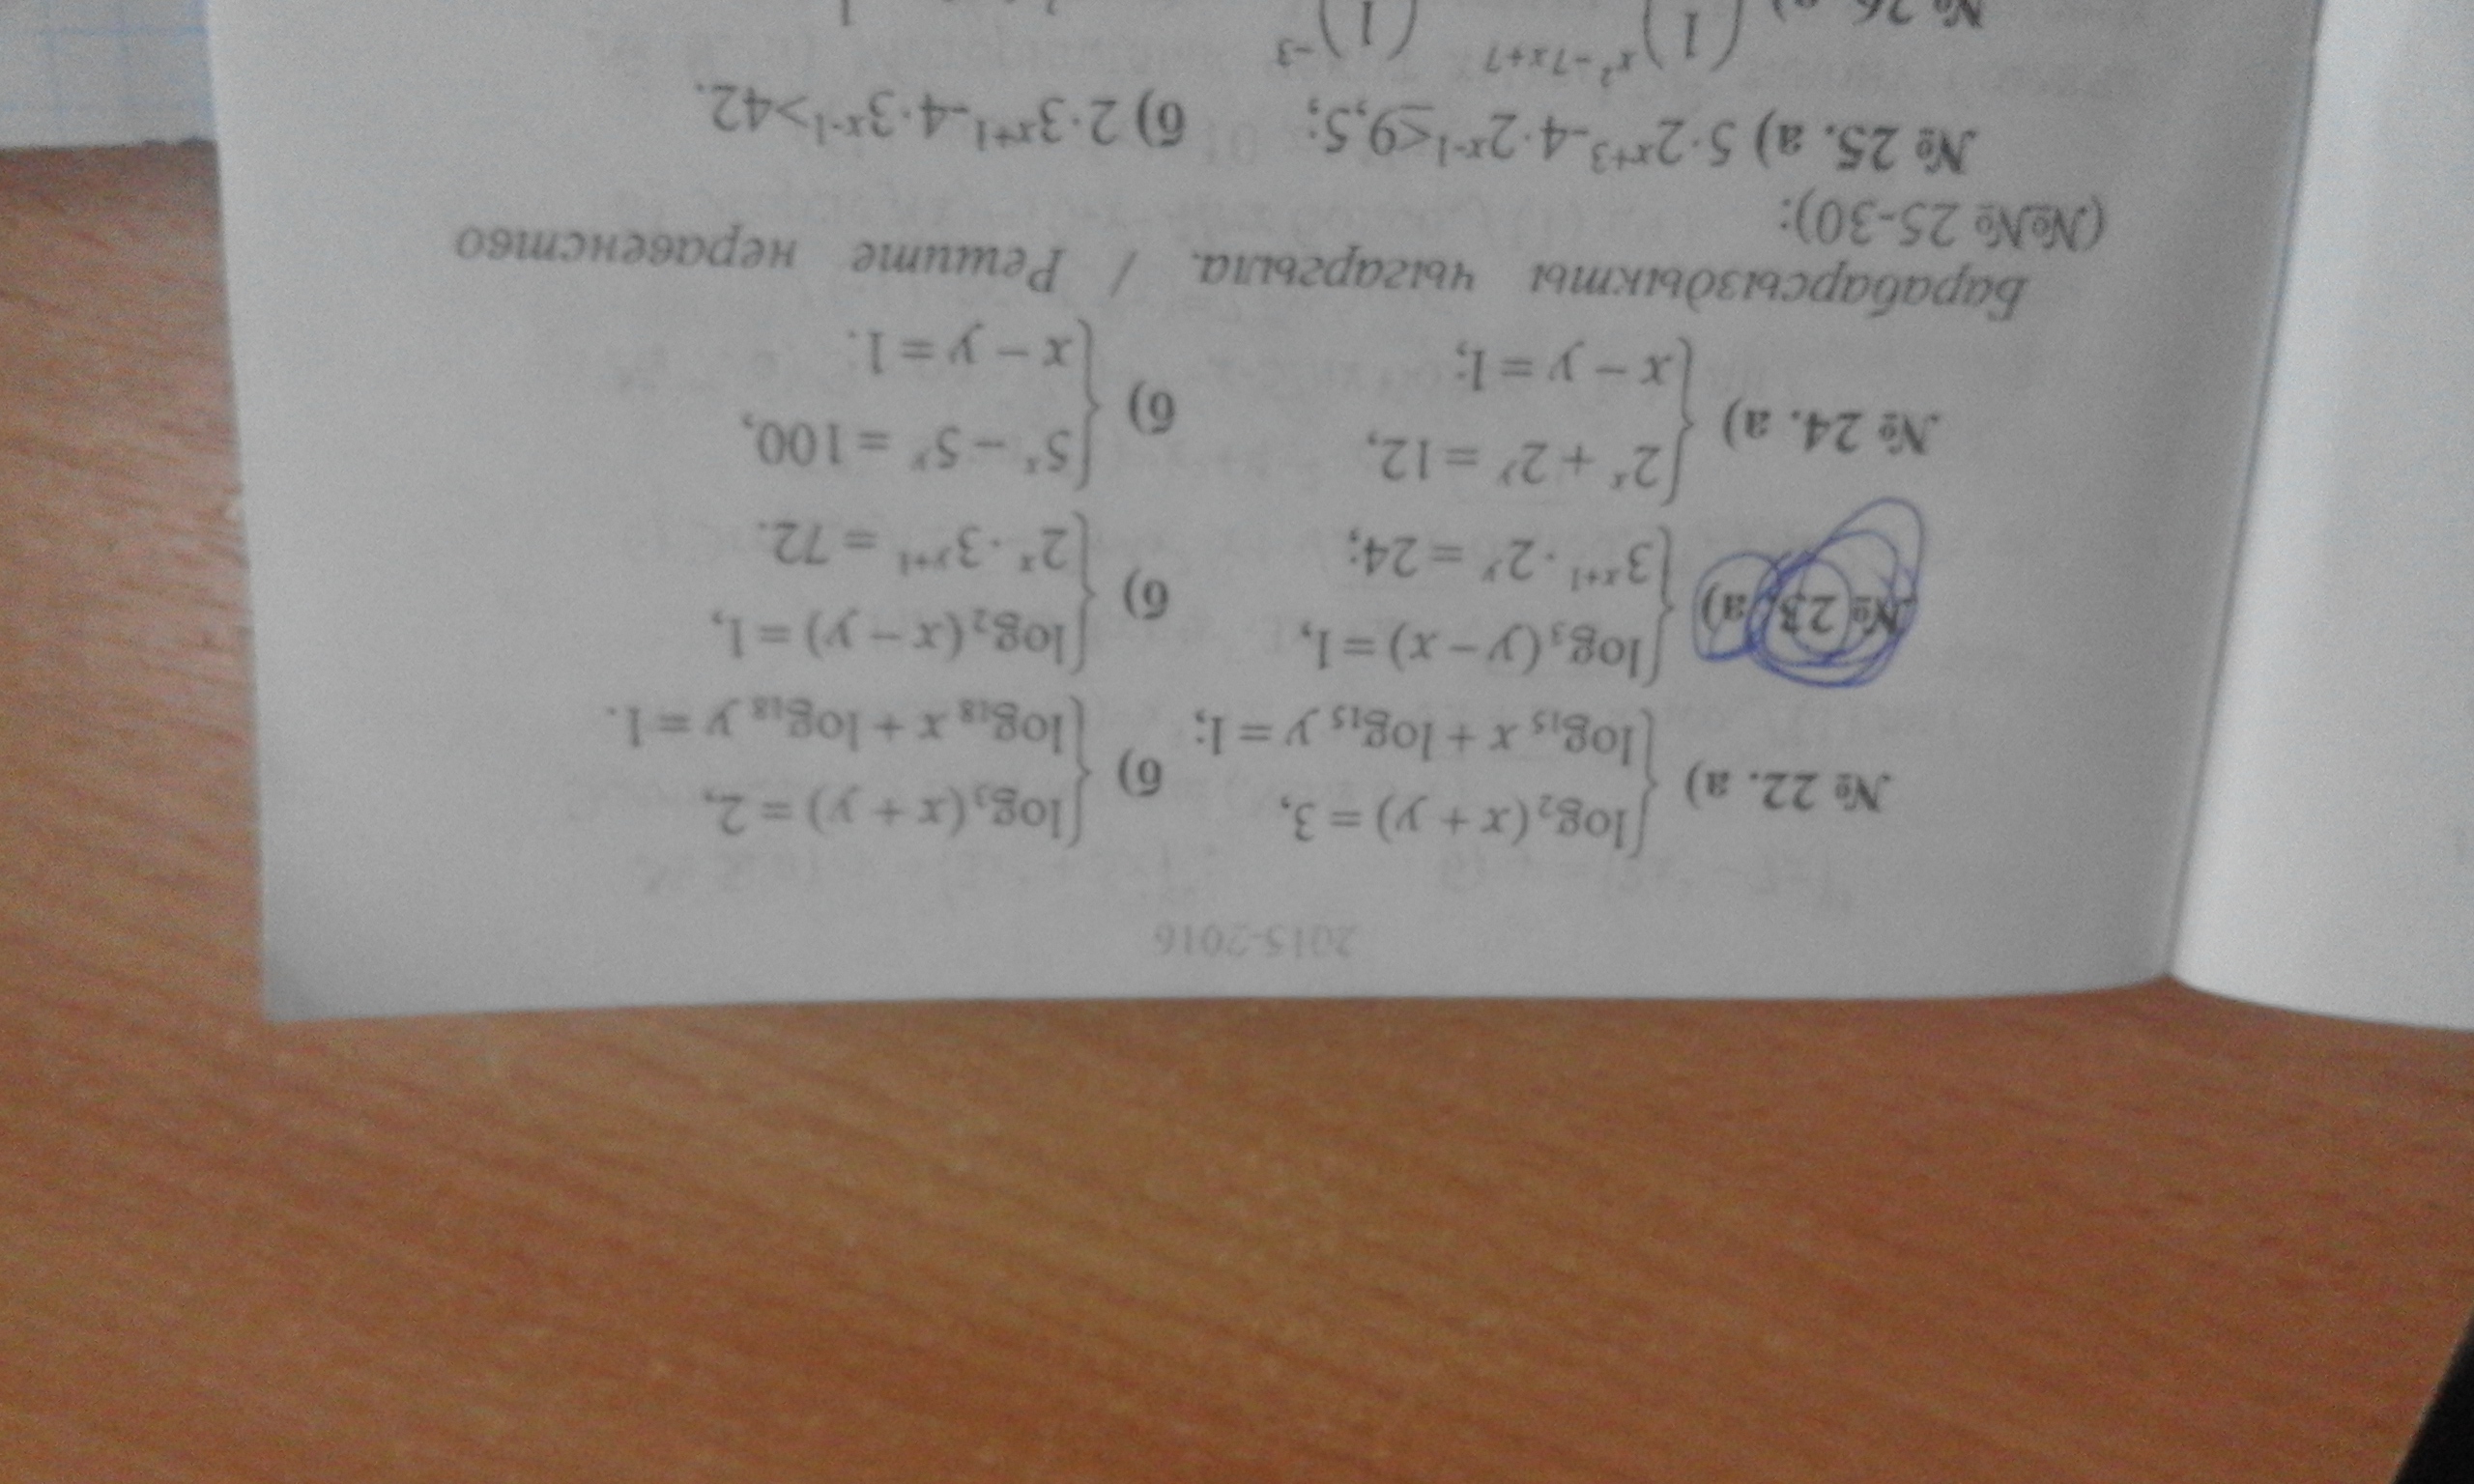 2015-2016
№ 22. а) { log₂(x + y) = 3, log₁₅ x + log₁₅ y = 1; б) { log₃(x + y) = 2, log₁₈ x + log₁₈ y = 1.
№ 23. а) { log₃(y − x) = 1, 3ˣ⁺¹ · 2ʸ = 24; б) { log₂(x − y) = 1, 2ˣ · 3ʸ⁺¹ = 72.
№ 24. а) { 2ˣ + 2ʸ = 12, x − y = 1; б) { 5ˣ − 5ʸ = 100, x − y = 1.
Барабарсыздыкты чыгаргыла. / Решите неравенство
(№№ 25-30):
№ 25. а) 5·2ˣ⁺³-4·2ˣ⁻¹≤9,5; б) 2·3ˣ⁺¹-4·3ˣ⁻¹>42.